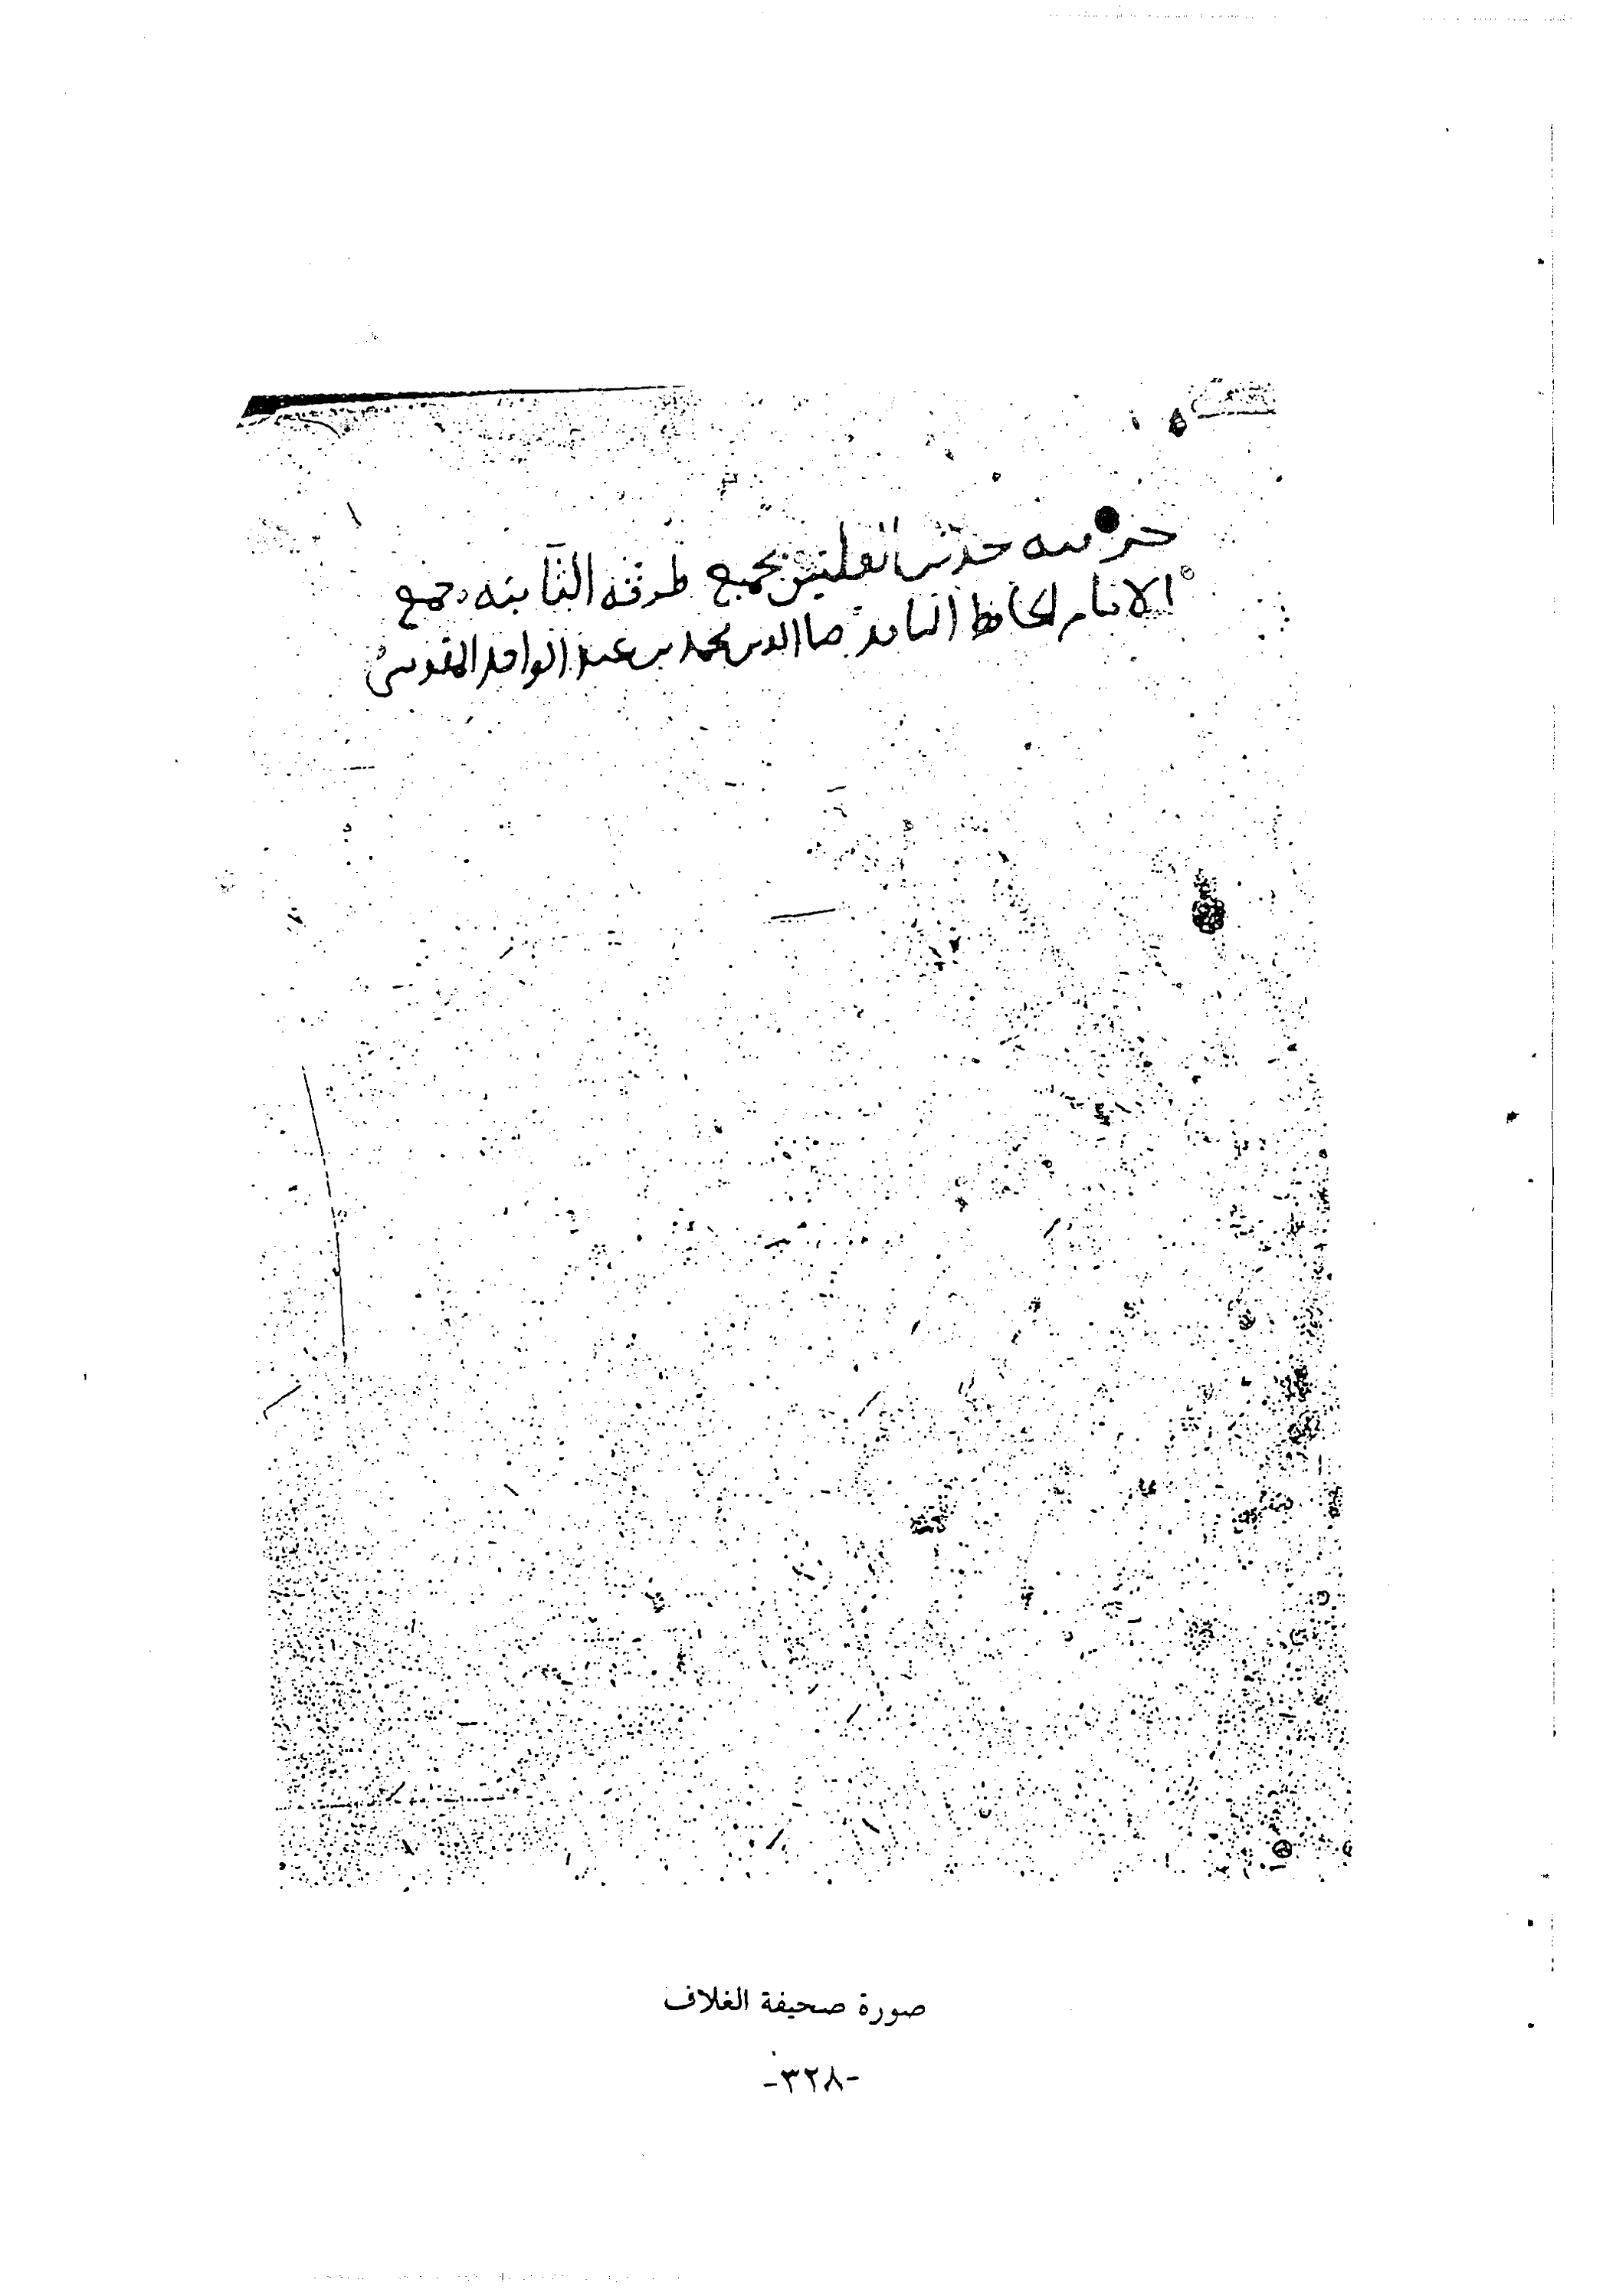 جزء فيه حديث القلتين بجميع طرقه الثابته جمع
الامام الحافظ الناقد ضيا الدين محمد بن عبد الواحد المقدسي
صورة صحيفة الغلاف
-٣٢٨-